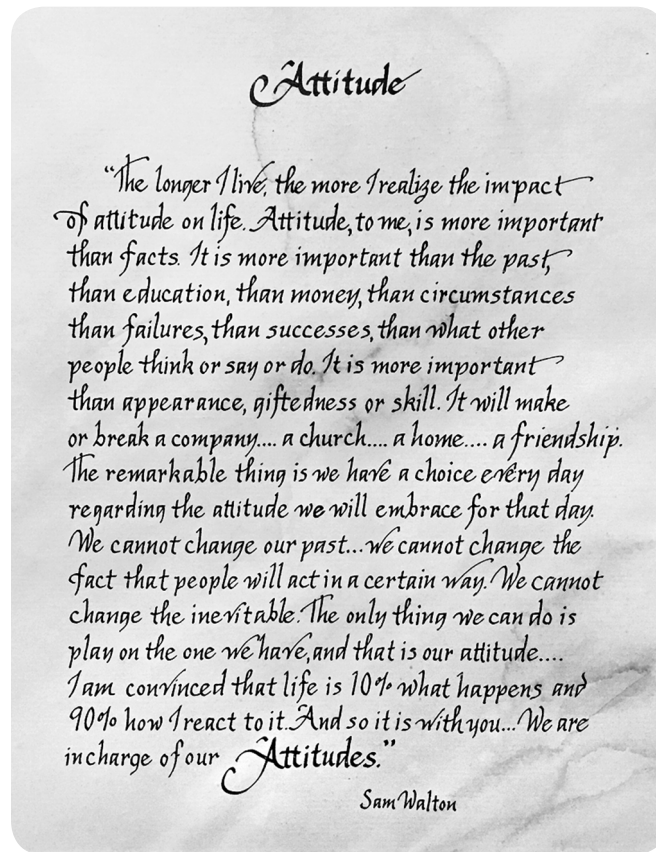 Attitude
"The longer I live, the more I realize the impact
of attitude on life. Attitude, to me, is more important
than facts. It is more important than the past,
than education, than money, than circumstances
than failures, than successes, than what other
people think or say or do. It is more important
than appearance, giftedness or skill. It will make
or break a company.... a church.... a home.... a friendship.
The remarkable thing is we have a choice every day
regarding the attitude we will embrace for that day.
We cannot change our past...we cannot change the
fact that people will act in a certain way. We cannot
change the inevitable. The only thing we can do is
play on the one we have, and that is our attitude....
I am convinced that life is 10% what happens and
90% how I react to it. And so it is with you... We are
in charge of our Attitudes."
Sam Walton